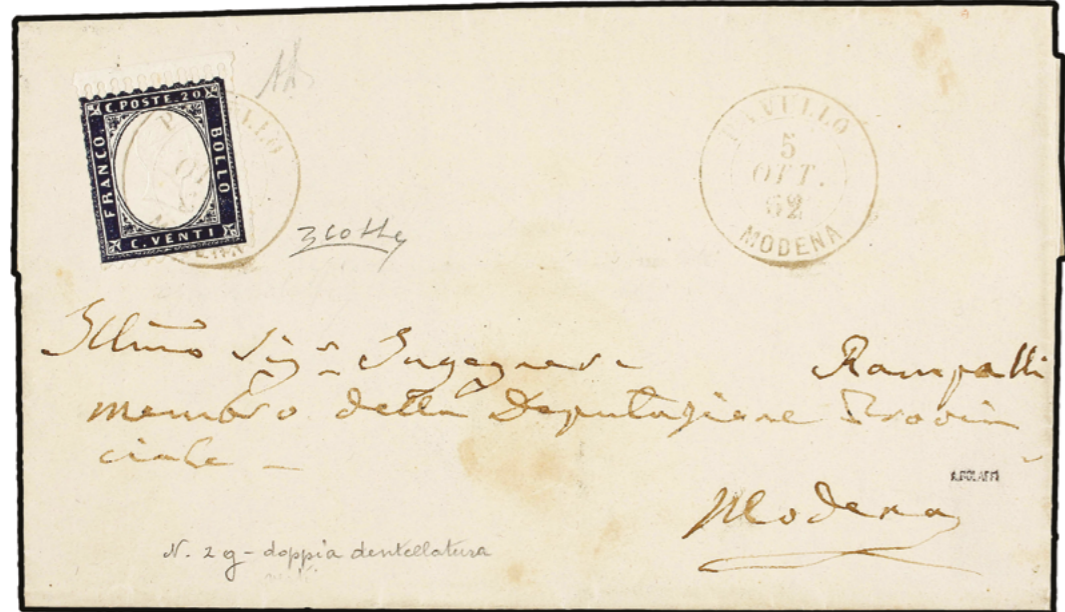 C. POSTE. 20
FRANCO.
BOLLO
C. VENTI
PAVULLO
5
OTT.
62
MODENA
Illmo Sigr Ingegnere Rampalli
membro della Deputazione Provin
ciale –
Modena
A.BOLAFFI
N. 2g – doppia dentellatura